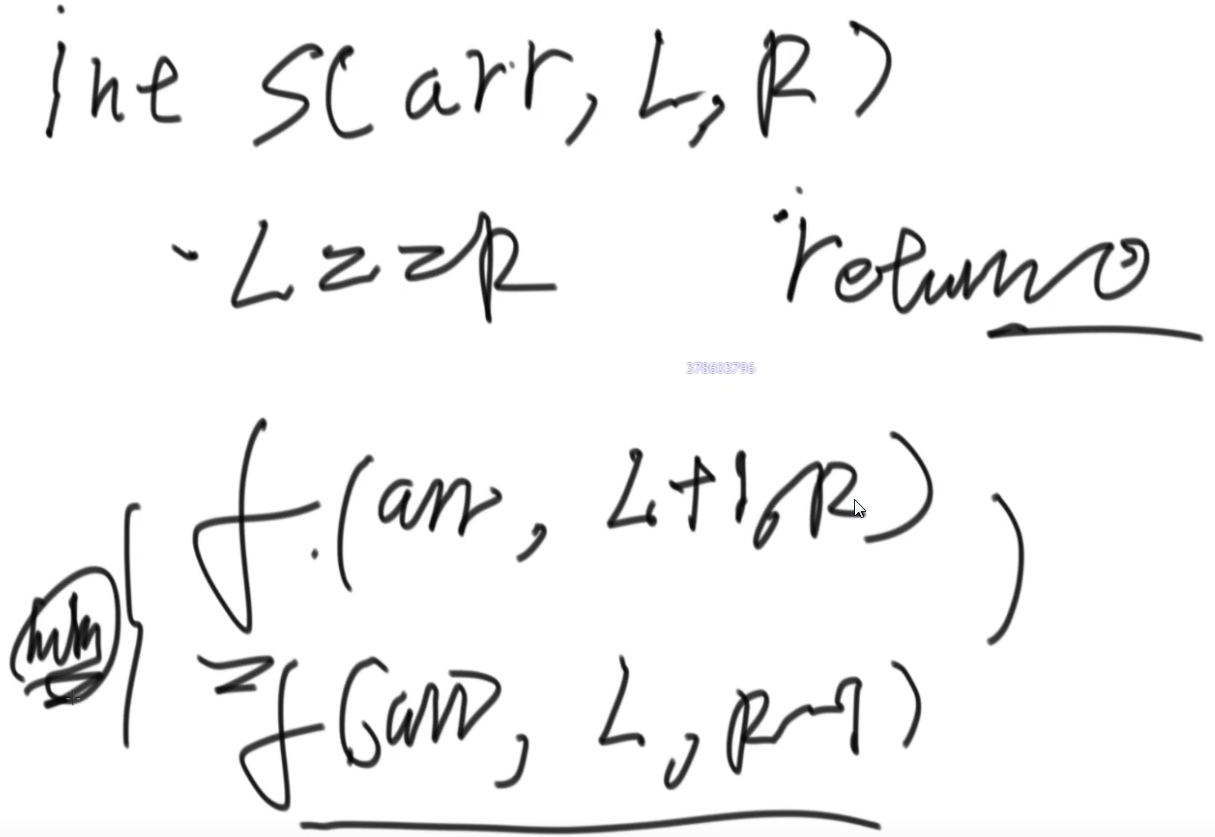 int S(arr, L, R)
L==R return 0
378603796
f(arr, L+1, R)
min
f(arr, L, R-1)